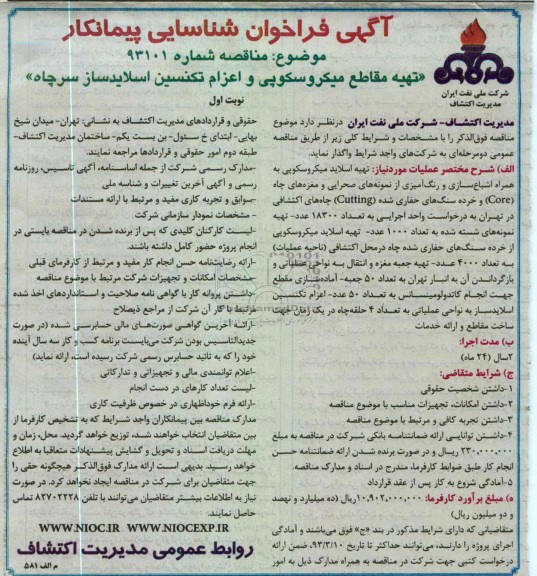 آگهی فراخوان شناسایی پیمانکار
موضوع: مناقصه شماره ۹۳۱۰۱
«تهیه مقاطع میکروسکوپی و اعزام تکنسین اسلایدساز سرچاه»
نوبت اول
شرکت ملی نفت ایران
مدیریت اکتشاف
مدیریت اکتشاف- شرکت ملی نفت ایران درنظر دارد موضوع
مناقصه فوق‌الذکر را با مشخصات و شرایط کلی زیر از طریق مناقصه
عمومی دومرحله‌ای به شرکت‌های واجد شرایط واگذار نماید.
الف) شرح مختصر عملیات موردنیاز: تهیه اسلاید میکروسکوپی به
همراه اشباع‌سازی و رنگ‌آمیزی از نمونه‌های صحرایی و مغزه‌های چاه
(Core) و خرده سنگ‌های حفاری شده (Cutting) چاه‌های اکتشافی
در تهران به درخواست واحد اجرایی به تعداد ۱۸۳۰۰ عدد- تهیه
نمونه‌های شسته شده به تعداد ۱۰۰۰ عدد- تهیه اسلاید میکروسکوپی
از خرده سنگ‌های حفاری شده چاه درمحل اکتشافی (ناحیه عملیات)
به تعداد ۴۰۰۰ عدد- تهیه جعبه مغزه و انتقال به نواحی عملیاتی و
بازگرداندن آن به انبار تهران به تعداد ۵۰ جعبه- آماده‌سازی مقطع
جهت انجام کاتدولومینسانس به تعداد ۵۰ عدد- اعزام تکنسین
اسلایدساز به نواحی عملیاتی به تعداد ۴ حلقه‌چاه در یک زمان جهت
ساخت مقاطع و ارائه خدمات
ب) مدت اجرا:
۲سال (۲۴ ماه)
ج) شرایط متقاضی:
۱-داشتن شخصیت حقوقی
۲-داشتن امکانات، تجهیزات مناسب با موضوع مناقصه
۳-داشتن تجربه کافی و مرتبط با موضوع مناقصه
۴-داشتن توانایی ارائه ضمانتنامه بانکی شرکت در مناقصه به مبلغ
۲۳۰,۰۰۰,۰۰۰ ریال و در صورت برنده شدن ارائه ضمانتنامه حسن
انجام کار طبق ضوابط کارفرما، مندرج در اسناد و مدارک مناقصه.
۵-آمادگی شروع به کار پس از عقد قرارداد
ه) مبلغ برآورد کارفرما: ۱۰,۹۰۲,۰۰۰,۰۰۰ریال (ده میلیارد و نهصد
و دو میلیون ریال)
متقاضیانی که دارای شرایط مذکور در بند «ج» فوق می‌باشند و آمادگی
اجرای پروژه را دارند، می‌توانند حداکثر تا تاریخ ۹۳/۳/۱۰، ضمن ارائه
درخواست کتبی جهت شرکت در مناقصه به همراه مدارک ذیل به امور
حقوقی و قراردادهای مدیریت اکتشاف به نشانی: تهران- میدان شیخ
بهایی- ابتدای خ سئول- بن بست یکم- ساختمان مدیریت اکتشاف-
طبقه دوم امور حقوقی و قراردادها مراجعه نمایند.
-مدارک رسمی شرکت از جمله اساسنامه، آگهی تاسیس، روزنامه
رسمی و آگهی آخرین تغییرات و شناسه ملی
-سوابق و تجربه کاری مفید و مرتبط با ارائه مستندات
- مشخصات نمودار سازمانی شرکت
-لیست کارکنان کلیدی که پس از برنده شدن در مناقصه بایستی در
انجام پروژه حضور کامل داشته باشند.
-ارائه رضایتنامه حسن انجام کار مفید و مرتبط از کارفرمای قبلی
-مشخصات امکانات و تجهیزات شرکت مرتبط با موضوع مناقصه
-داشتن پروانه کار یا گواهی نامه صلاحیت و استانداردهای اخذ شده
مرتبط با کار آن شرکت از مراجع ذیصلاح
-ارائه آخرین گواهی صورت‌های مالی حسابرسی شده (در صورت
جدیدالتاسیس بودن شرکت می‌بایست برنامه کسب و کار سه سال آینده
خود را که به تائید حسابرس رسمی شرکت رسیده است، ارائه نماید)
-اعلام توانمندی مالی و تجهیزاتی و تدارکاتی
-لیست تعداد کارهای در دست انجام
-ارائه فرم خوداظهاری در خصوص ظرفیت کاری
مدارک مناقصه بین پیمانکاران واجد شرایط که به تشخیص کارفرما از
بین متقاضیان انتخاب خواهند شد، توزیع خواهد گردید. محل، زمان و
مهلت دریافت اسناد و تحویل و گشایش پیشنهادات متعاقبا به اطلاع
خواهد رسید. بدیهی است ارائه مدارک فوق‌الذکر هیچگونه حقی را
جهت متقاضیان برای شرکت در مناقصه ایجاد نخواهد کرد. در صورت
نیاز به اطلاعات بیشتر متقاضیان می‌توانند با تلفن ۸۲۷۰۲۲۲۸ تماس
حاصل نمایند.
WWW.NIOC.IR WWW.NIOCEXP.IR
روابط عمومی مدیریت اکتشاف
م الف ۵۸۱